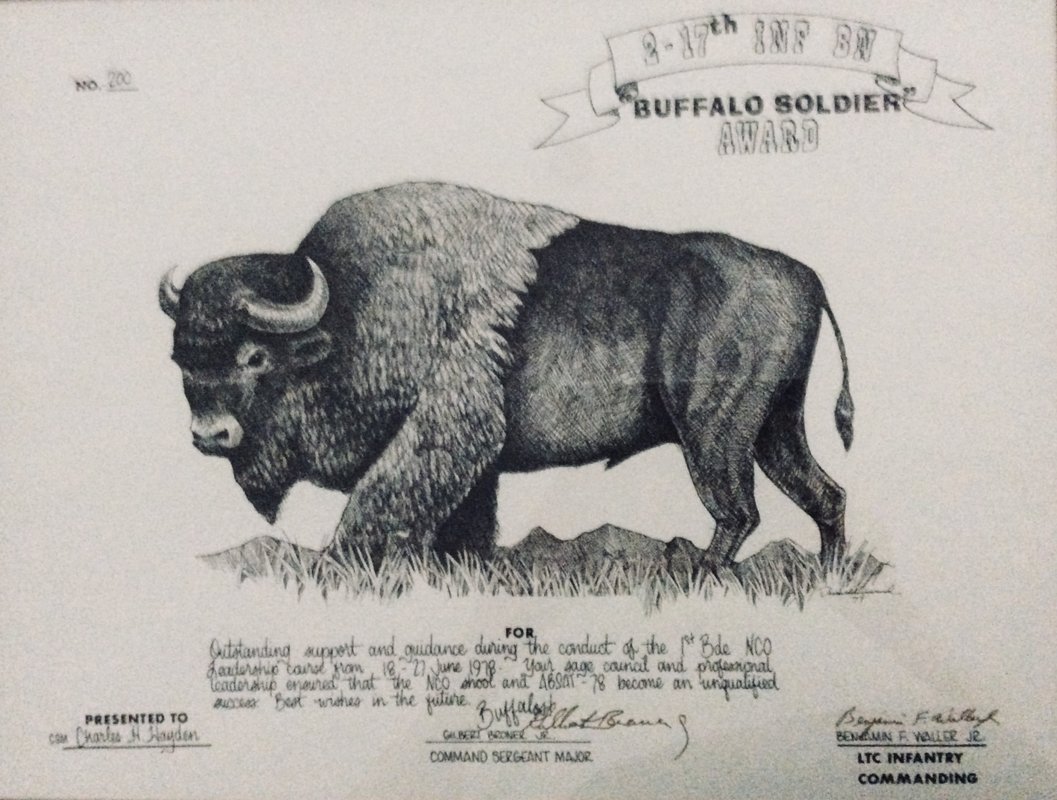 NO. 200
2-17th INF BN
"BUFFALO SOLDIER"
AWARD
FOR
Outstanding support and guidance during the conduct of the 1st Bde NCO
Leadership course from 18-27 June 1978. Your sage council and professional
leadership ensured that the NCO shool and ABSAT-78 become an unqualified
success. Best wishes in the future.
Buffalos!
PRESENTED TO
CSM Charles H Hayden
GILBERT BRONER JR.
COMMAND SERGEANT MAJOR
Benjamin F. Waller Jr
BENJAMIN F. WALLER JR.
LTC INFANTRY
COMMANDING